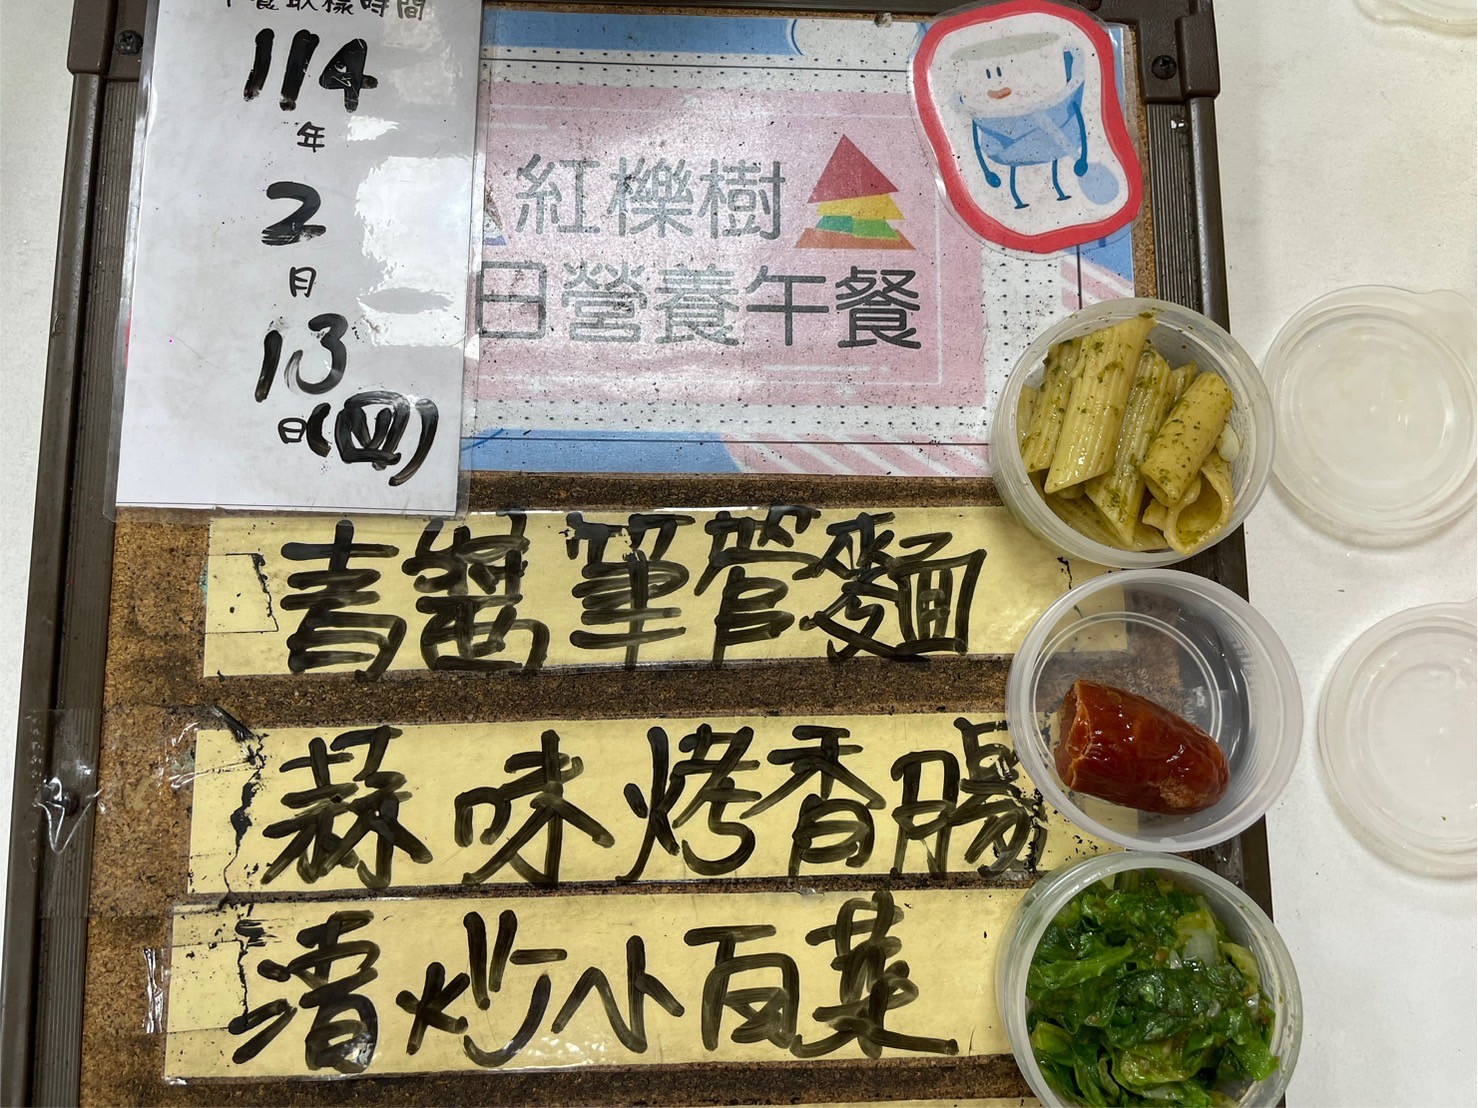 午餐取樣時間
114
年
2
月
13
日(四)
紅櫟樹
日營養午餐
青醬筆管麵
蒜味烤香腸
清炒小白菜